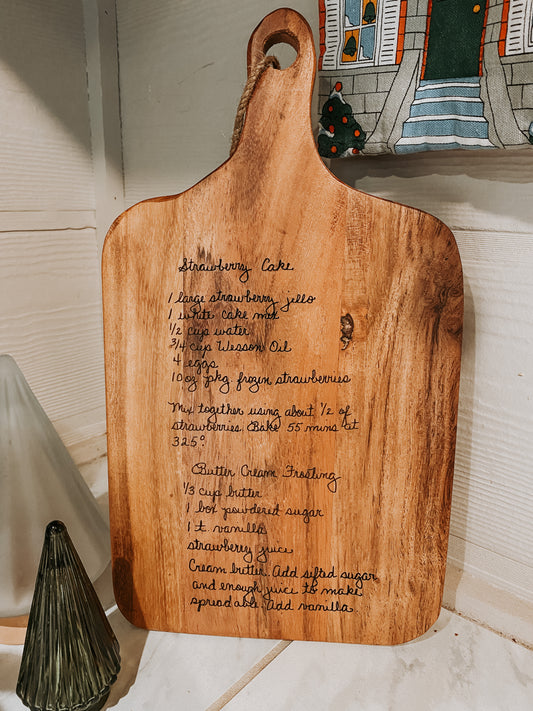 Strawberry Cake
1 large strawberry jello
1 white cake mix
1/2 cup water
3/4 cup Wesson Oil
4 eggs
10 oz pkg frozen strawberries
Mix together using about 1/2 of
strawberries. Bake 55 mins at
325°.
Butter Cream Frosting
1/3 cup butter
1 box powdered sugar
1 t. vanilla
strawberry juice
Cream butter. Add sifted sugar
and enough juice to make
spreadable. Add vanilla.